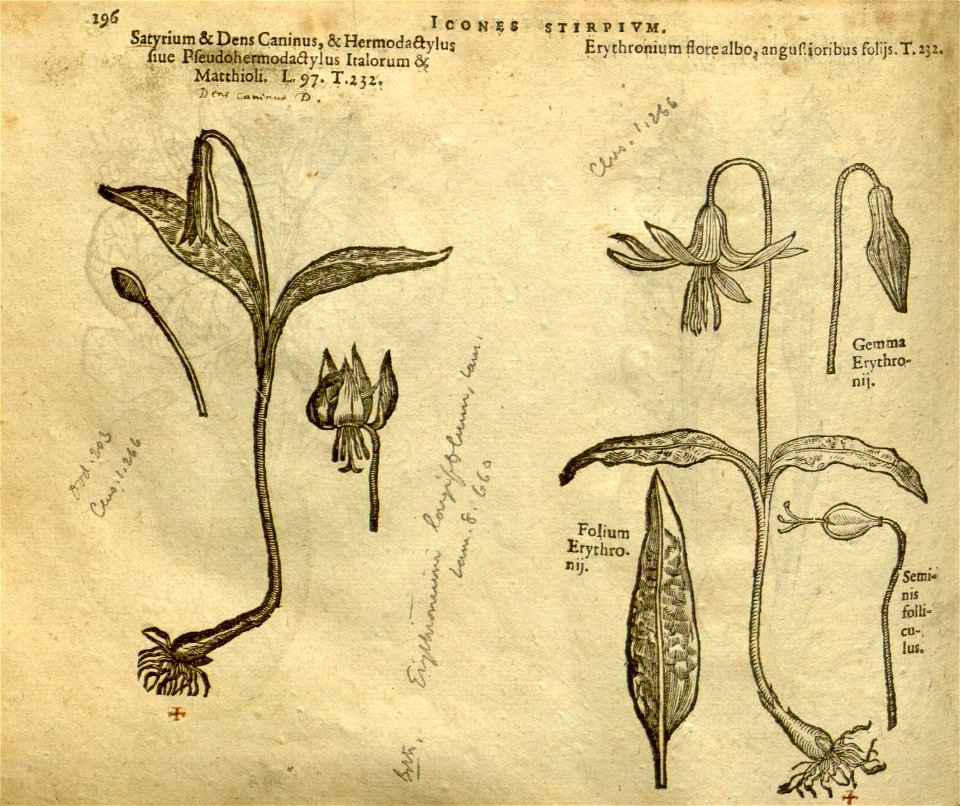 196
ICONES STIRPIVM.
Satyrium & Dens Caninus, & Hermodactylus
siue Pseudohermodactylus Italorum &
Matthioli. L. 97. T. 232.
Dens caninus D.
Erythronium flore albo, angustioribus folijs. T. 232.
Clus. 1, 266
Gemma
Erythro-
nij.
Dod. 203
Clus. 1. 266
Erythronium longifolium, Lam.
Lam. 8. 660
Folium
Erythro-
nij.
Semi-
nis
folli-
cu-
lus.